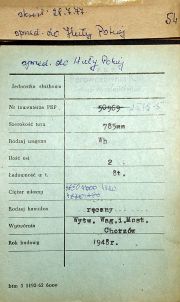 skreśl. 28.7.77
sprzed. do Huty Pokój
54
sprzed. do Huty Pokój
Jednostka służbowa
Nr inwentarza PKP
Szerokość toru 785mm
Rodzaj wagonu Wb
Ilość osi 2
Ładowność w t. 8t.
Ciężar własny
Rodzaj hamulca ręczny
Wytwórnia Wytw. Wag. i Most. Chorzów
Rok budowy 1948r.